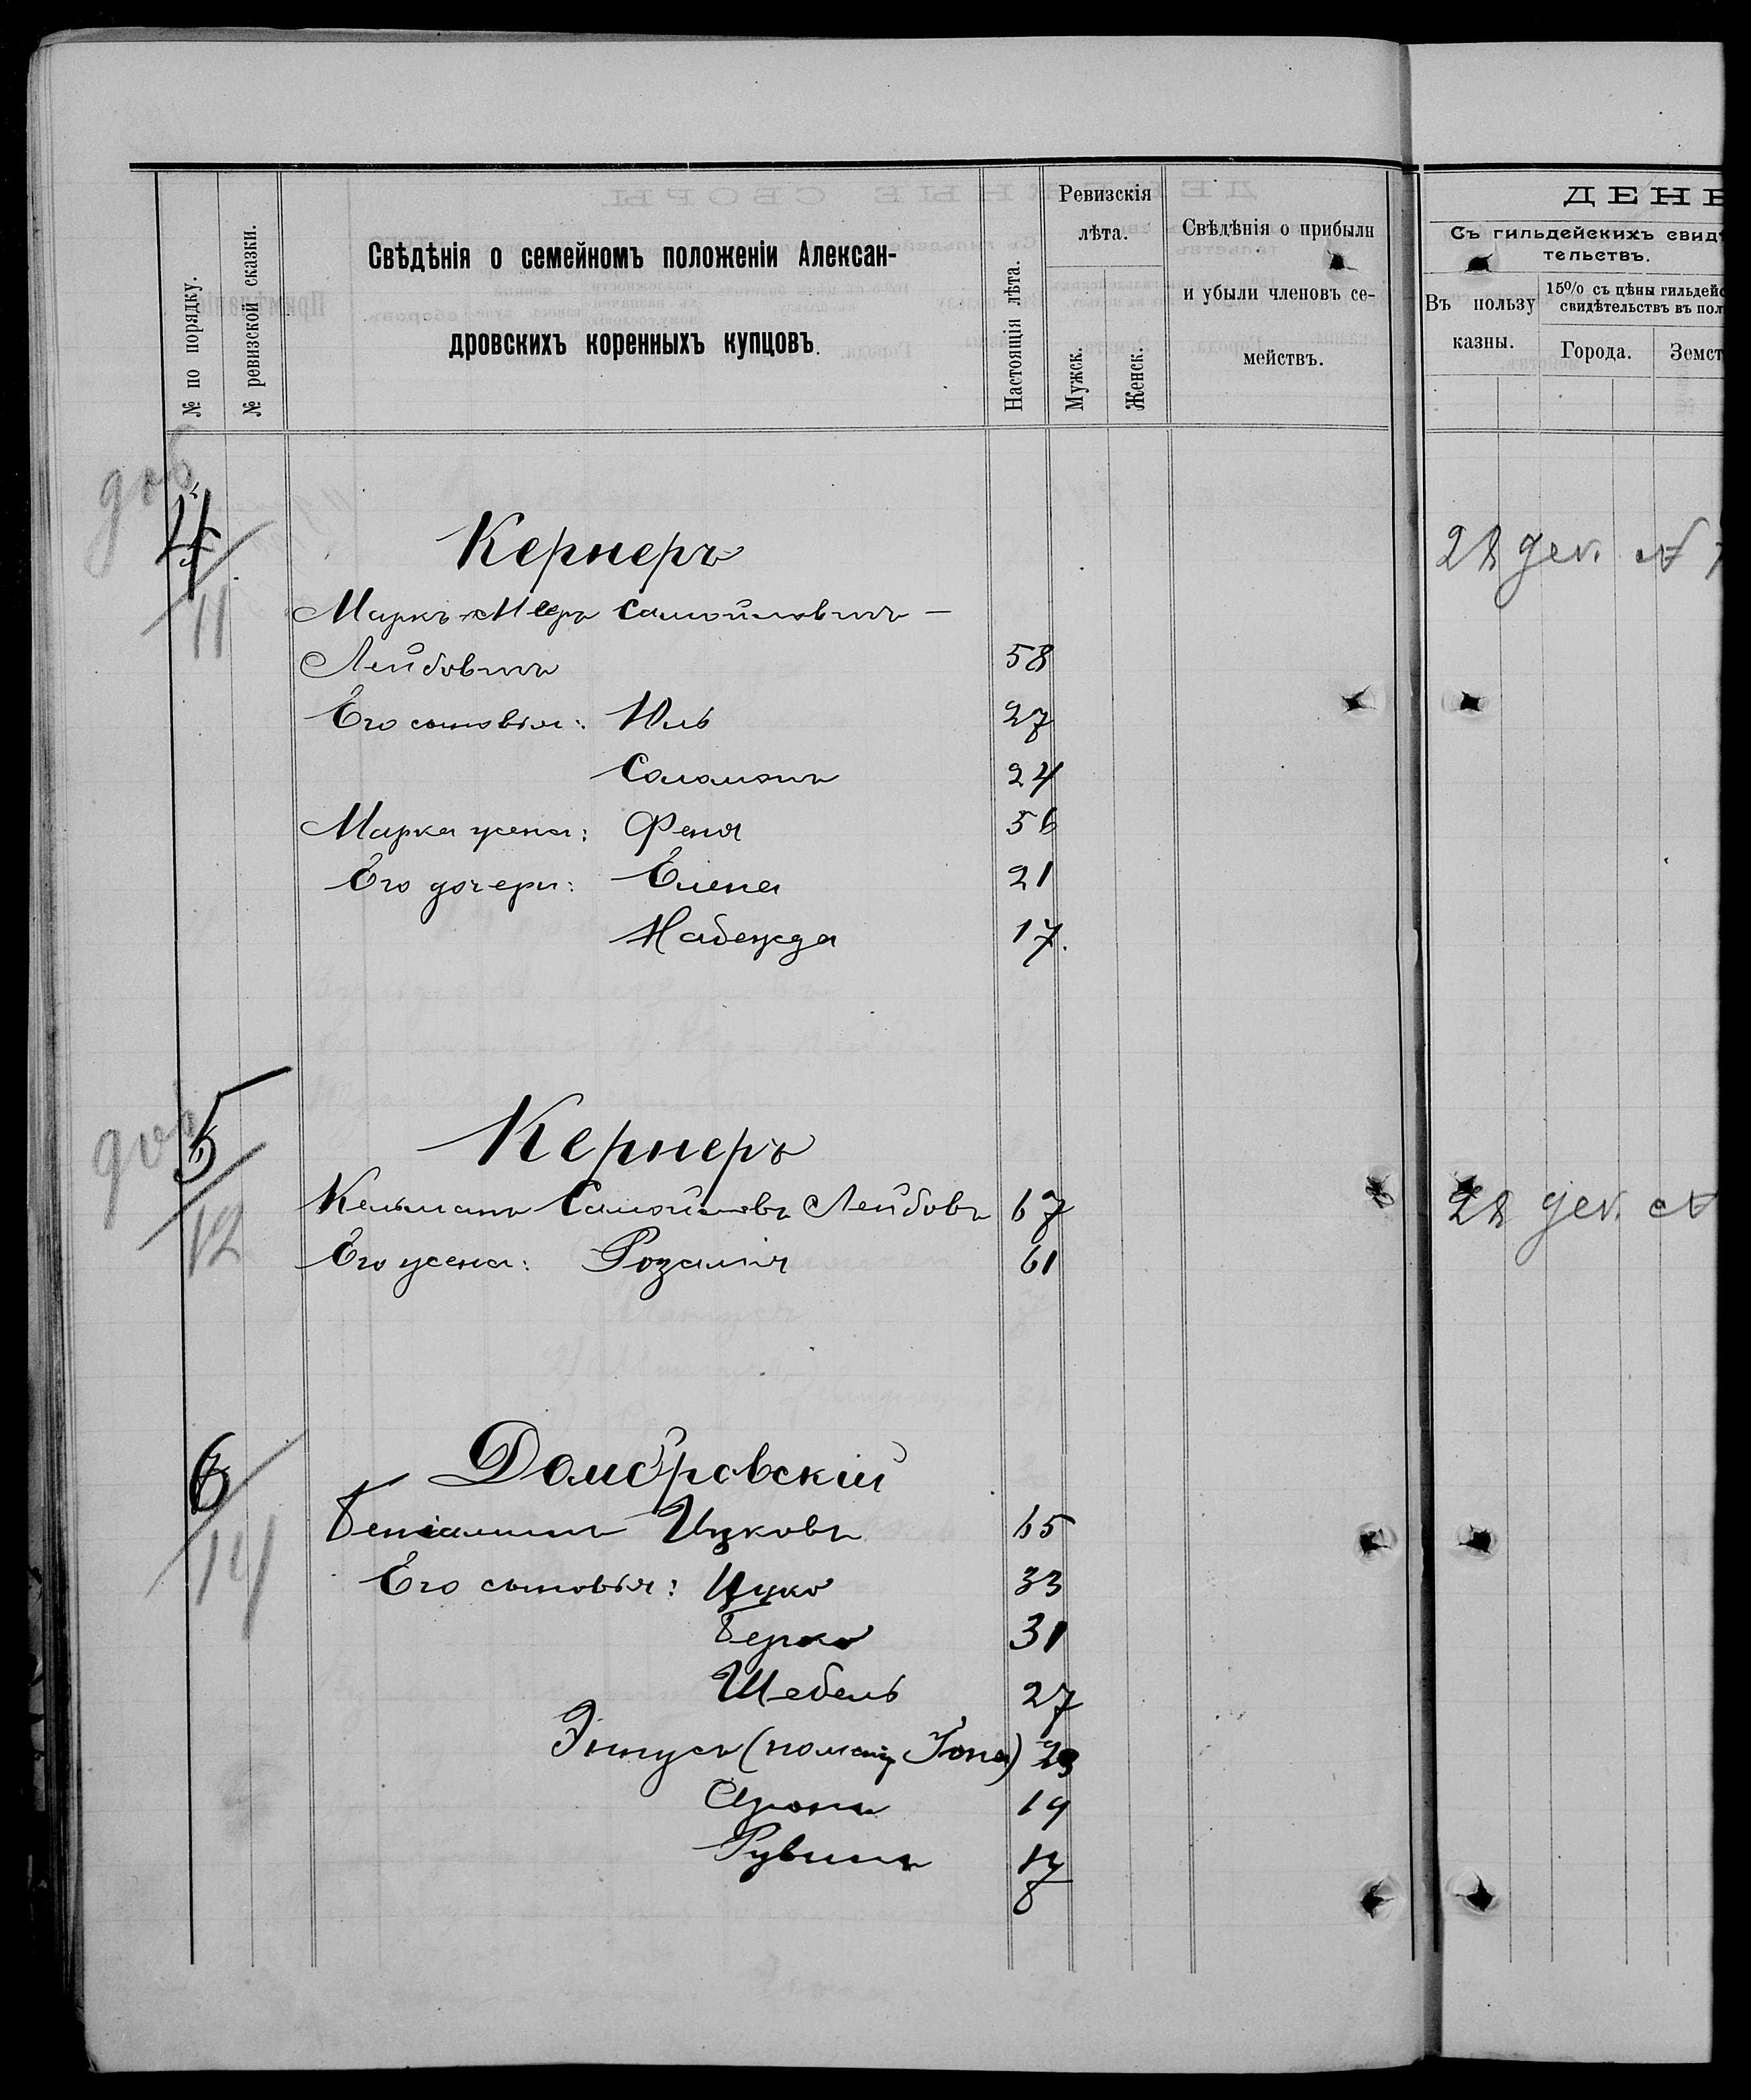 № по порядку.
№ ревизской сказки.
Свѣдѣнія о семейномъ положеніи Алексан-
дровскихъ коренныхъ купцовъ.
Настоящія лѣта.
Ревизскія
лѣта.
Мужск.
Женск.
Свѣдѣнія о прибыли
и убыли членовъ се-
мействъ.
ДЕНЕ
Съ гильдейскихъ свидѣ
тельствъ.
Въ пользу
казны.
15% съ цѣны гильдейс
свидѣтельствъ въ пол
Города.
Земст
4
Кернеръ
28 дек. №
11
Маркъ-Меръ Самойловичъ-
Лейбовичъ 58
Его сыновья: Юль 27
Соломонъ 24
Марка жена: Феня 56
Его дочери: Елена 21
Надежда 17.
5
Кернеръ
12
Кельманъ Самойловъ Лейбовъ 67
28 дек. №
Его жена: Розалія 61
6
Домбровскій
14
Беніаминъ Ицковъ 65
Его сыновья: Ицко 33
Берко 31
Шебель 27
Эннусъ (Іона) 23
Аронъ 19
Рувинъ